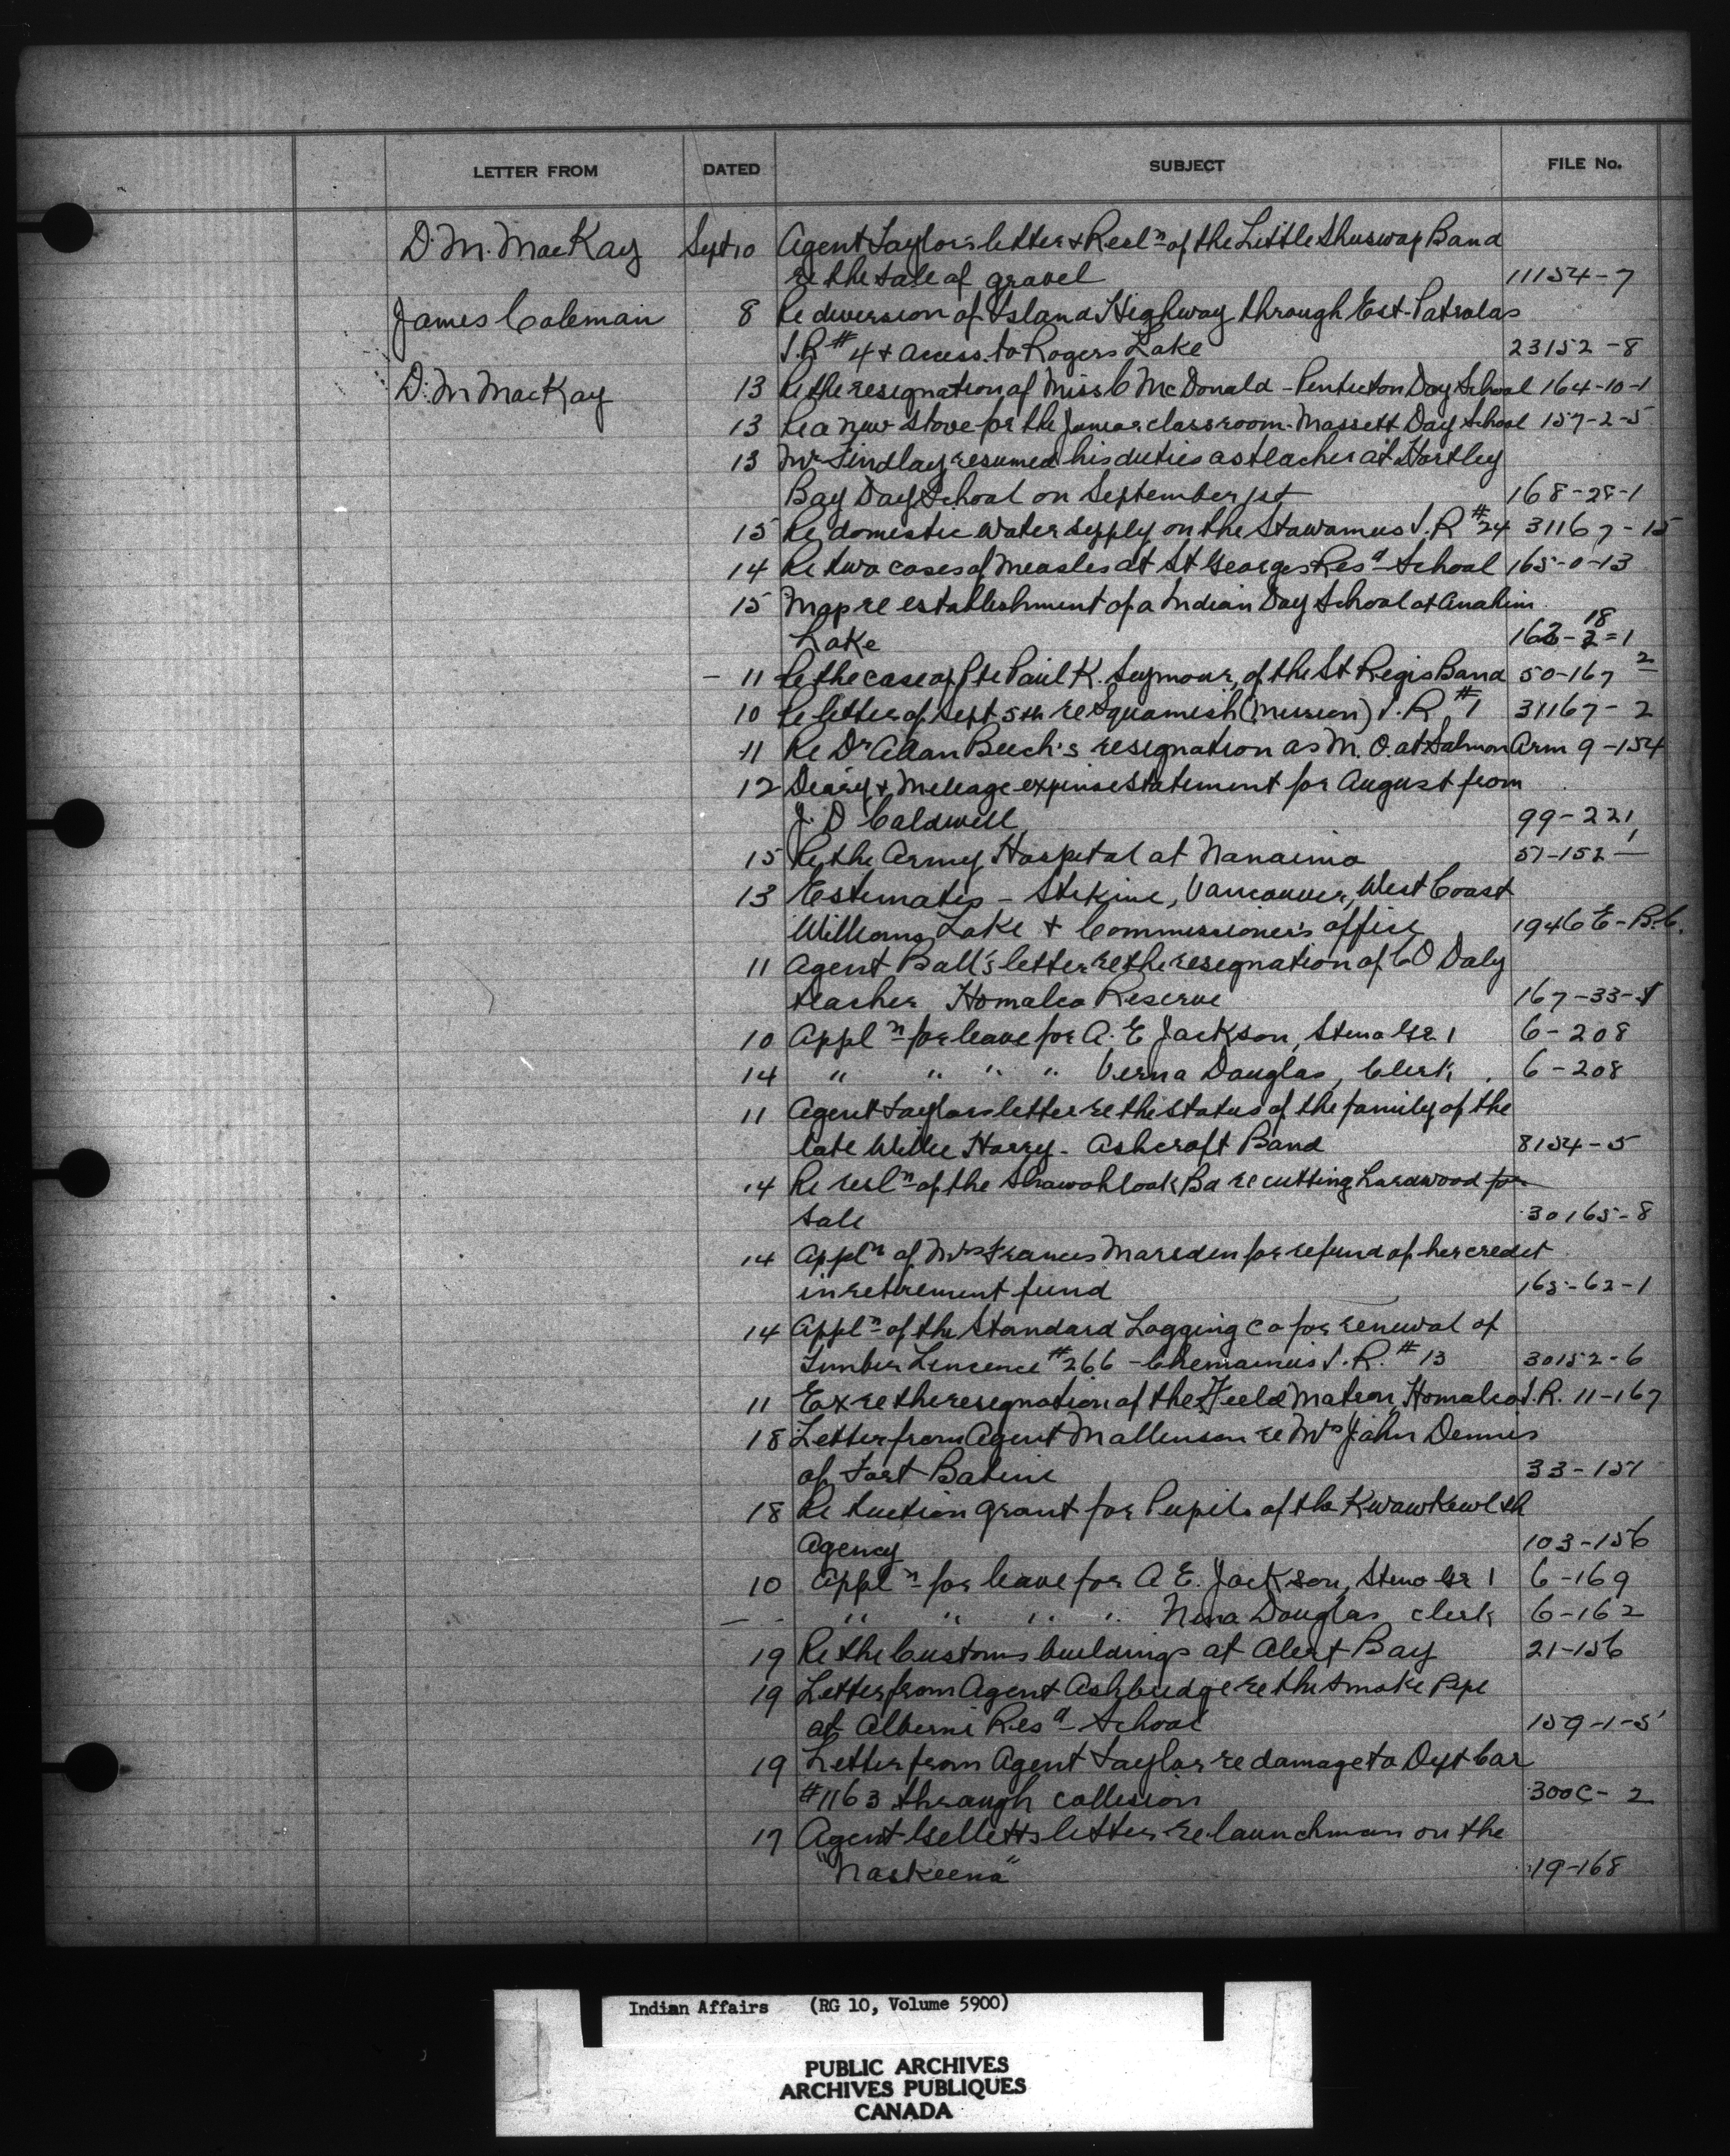 LETTER FROM DATED SUBJECT FILE No.
D. M. MacKay Sept 10 Agent Taylor's letter & Resl'n of the Little Shuswap Band
re the sale of gravel 11154-7
James Coleman 8 Re diversion of Island Highway through East-Patrolas
I.R #4 & access to Rogers Lake 23152-8
D. M MacKay 13 Re the resignation of Miss C McDonald - Penticton Day School 164-10-1
13 Re a new stove for the Junior classroom - Massett Day School 157-2-5
13 Mr Findlay resumed his duties as teacher at Hartley
Bay Day School on September 1st 168-28-1
15 Re domestic water supply on the Stawamus I.R #24 31167-15
14 Re two cases of measles at St Georges Res'd School 165-0-13
15 Map re establishment of a Indian Day School at Anahim
Lake 162-18-1
- 11 Re the case of Pte Paul K. Seymour, of the St Regis Band 50-167 2
10 Re letter of Sept 5th re Squamish (Mission) I.R #1 31167-2
11 Re Dr Allan Beech's resignation as M. O. at Salmon Arm 9-154
12 Diary & Mileage expense statement for August from
J. D Caldwell 99-221
15 Re the Army Hospital at Nanaimo 57-152-1
13 Estimates - Stikine, Vancouver, West Coast
Williams Lake & Commissioner's office 1946 E-B.C.
11 Agent Ball's letter re the resignation of C O Daly
teacher Homalco Reserve 167-33-1
10 Appl'n for leave for A. E Jackson, Steno Gr 1 6-208
14 " " " " Verna Douglas, Clerk 6-208
11 Agent Taylors letter re the status of the family of the
late Willie Harry - Ashcroft Band 8154-5
14 Re resl'n of the Shawahlook Bd re cutting hardwood for
sale 30165-8
14 Appl'n of Mrs Frances Marsden for refund of her credit
in retirement fund 165-62-1
14 Appl'n of the Standard Logging Co for renewal of
Timber Lincence #266 - Chemainus I.R. #13 30152-6
11 Ex re the resignation of the Field Matron, Homalco I.R. 11-167
18 Letter from Agent Mallinson re Mrs John Dennis
of Fort Babine 33-151
18 Re tuction grant for Pupils of the Kwawkewlth
Agency 103-156
10 Appl'n for leave for A E. Jackson, Steno Gr 1 6-169
- - " " " " Nina Douglas, clerk 6-162
19 Re the Customs buildings at Alert Bay 21-156
19 Letter from Agent Ashbridge re the smoke pipe
at Alberni Res'd School 159-1-5
19 Letter from Agent Taylor re damage to Dept Car
#1163 through collision 300C-2
17 Agent Gilletts letter re launchman on the
"Naskeena" 19-168
Indian Affairs (RG 10, Volume 5900)
PUBLIC ARCHIVES
ARCHIVES PUBLIQUES
CANADA